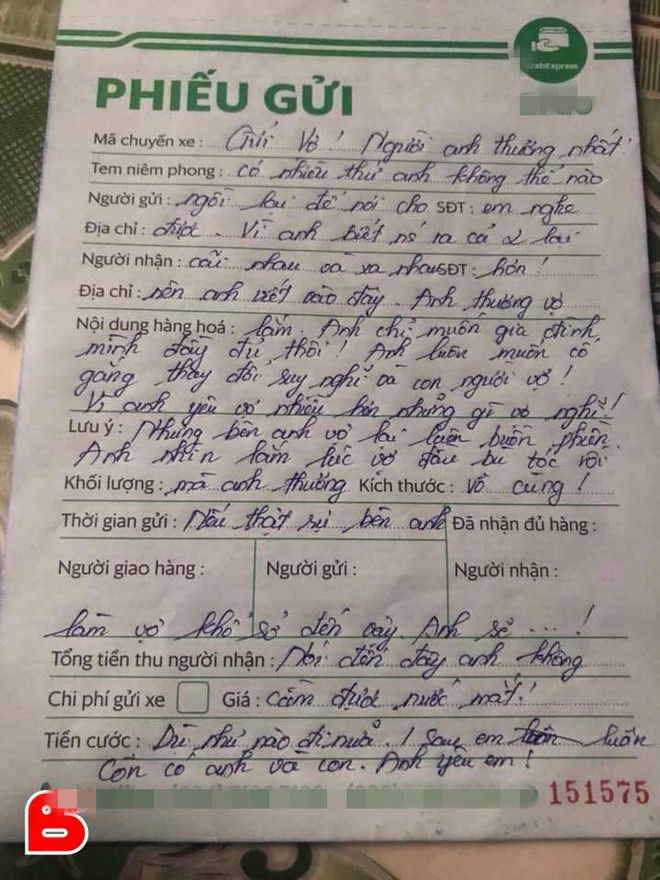 GrabExpress
PHIẾU GỬI
Mã chuyến xe : Gửi Vợ! Người anh thương nhất!
Tem niêm phong : có nhiều thứ anh không thể nào
Người gửi : ngồi lại để nói cho SĐT : em nghe
Địa chỉ : được. Vì anh biết nó ra cả 2 lại
Người nhận : cãi nhau và xa nhau SĐT : hơn!
Địa chỉ : nên anh viết vào đây. Anh thương vợ
Nội dung hàng hoá : lắm. Anh chỉ muốn gia đình
mình đầy đủ thôi! Anh luôn muốn cố
gắng thay đổi suy nghĩ và con người vợ!
Vì anh yêu vợ nhiều hơn những gì vợ nghĩ!
Lưu ý : Nhưng bên anh vợ lại luôn buồn phiền.
Anh nhìn lắm lúc vợ đầu bù tóc rối
Khối lượng : mà anh thương Kích thước : vô cùng!
Thời gian gửi : Nếu thật sự bên anh Đã nhận đủ hàng :
Người giao hàng : Người gửi : Người nhận :
làm vợ khổ sở đến vậy. Anh sẽ ...!
Tổng tiền thu người nhận : Nói đến đây anh không
Chi phí gửi xe Giá : cầm được nước mắt!
Tiền cước : Dù như nào đi nữa. ! Sau em luôn
Còn có anh và con. Anh yêu em!
151575